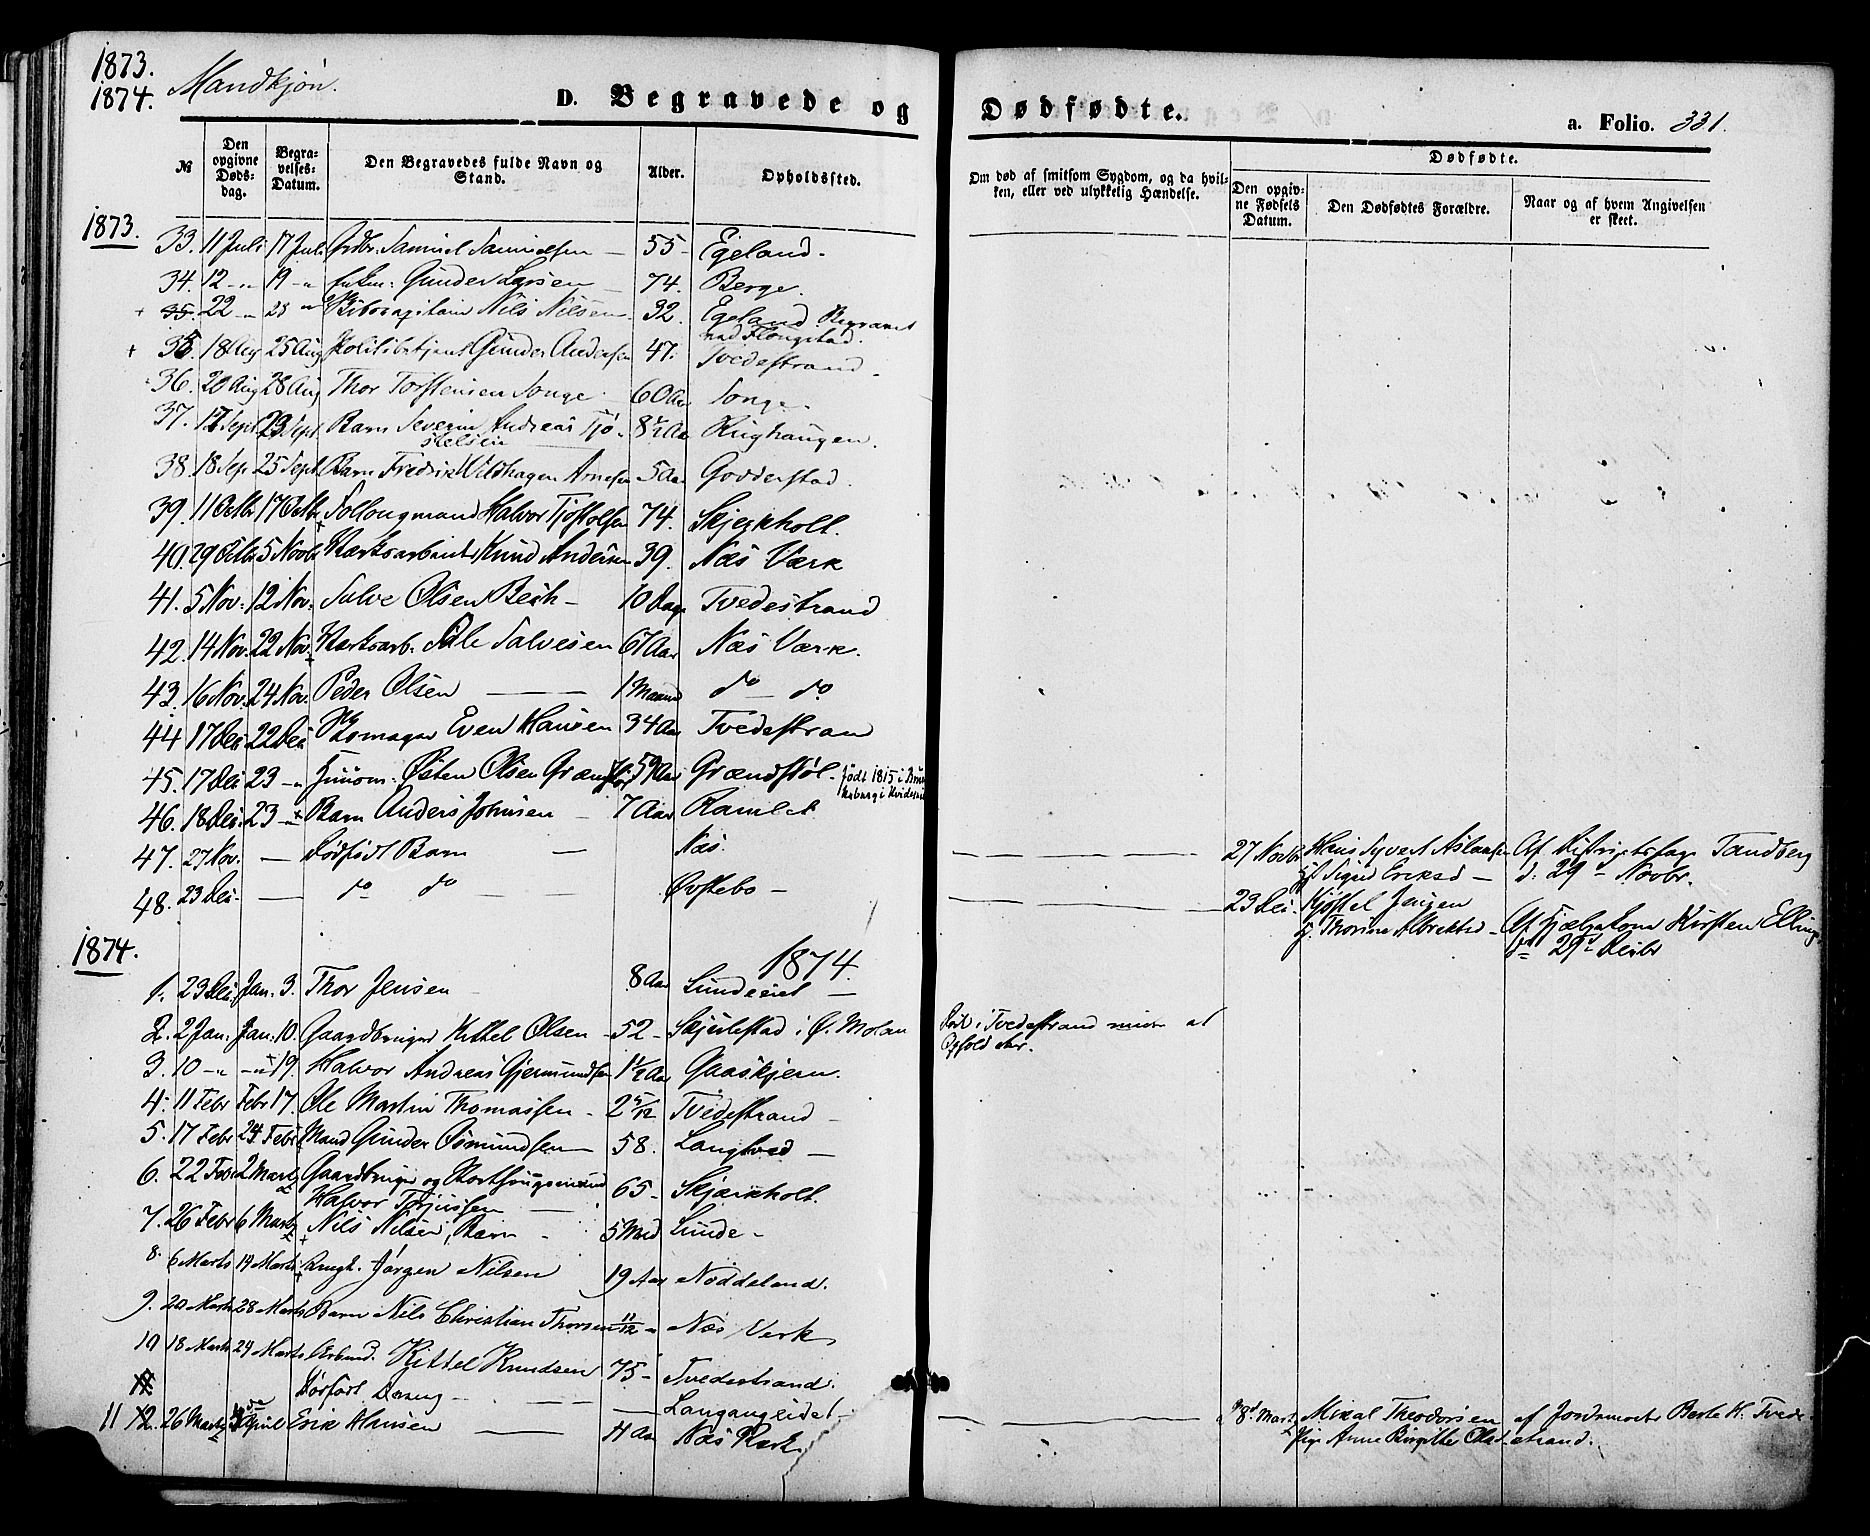 1873.
1874.
Mandkjön.
D. Begravede og Dødfødte.
a. Folio. 331.
№
Den opgivne Døds-dag.
Begra-velses-Datum.
Den Begravedes fulde Navn og Stand.
Alder.
Opholdssted.
Om død af smitsom Sygdom, og da hvil-ken, eller ved ulykkelig Hændelse.
Dødfødte.
Den opgiv-ne Fødsels Datum.
Den Dødfødtes Forældre.
Naar og af hvem Angivelsen er skeet.
1873.
33. 11 Juli 17 Juli Gdbr. Samuel Samuelsen 55 - Egeland.
34. 12 -"- 19 -"- Gunder Larsen 74. Berge.
35. 22 -"- 28 -"- Nils Nilsen 32. Egeland Begravet
ved Flangstad.
35. 18 Aug 25 Aug Politibetjent Gunder Andersen 47. Tvedestrand
36. 20 Aug 28 Aug Thor Torstensen Songe 60 Aar Songe
37. 17 Sept 23 Sept. Barn Severin Andreas Tjö- 8½ Aar Rughaugen.
stelsen
38. 18 Sep. 25 Sept Barn Fredrik Wildhagen Arnesen 5 Aar Godderstad.
39. 11 Octbr 17 Octbr Follougmand Halvor Tjöstolsen 74. Skjerkholt.
40. 29 Octbr 5 Novbr Værksarbeider Knud Andersen 39. Næs Værk
41. 5 Nov. 12 Nov. Salve Olsen Bech - 10 Dage Tvedestrand
42. 14 Nov. 22 Nov. Værksarb. Ole Salvesen 67 Aar Næs Værk.
43. 16 Nov. 24 Nov. Peder Olsen 1 Maaned do do
44 17 Dec 22 Dec Skomager Even Hansen 34 Aar Tvedestrand
45. 17 Dec 23 -"- Huusm. Østen Olsen Grændstøl 59 Aar Grændstöl - födt 1815 i
i Kvidesei
46. 18 Dec. 23 -"- Barn Anders Johnsen 7 Aar Ramlet
47. 27 Nov. — Dödfödt Barn — Næs. 27 Novbr Hans Syvert Aslaksen Af Distriktslæge Tandberg
Sigrid Eriksd — d: 29 Novbr.
48. 23 Dec. — do do — Øvstebo - 23 Dec. Kjøstel Jensen Af Hjælpekone Kirsten Elling
Thorine Albrektsd 29 Decbr
1874.
1874.
1. 23 Dec. Jan. 3. Thor Jensen 8 Aar Lundeeiet
2. 2 Jan. Jan. 10. Gaardbruger Kittel Olsen - 52 - Skjulestad i Ø. Molan Död i Tvedestrand under et
Ophold der.
3. 10 -"- -"- 19. Halvor Andreas Gjermundsen 1½ Aar Gaaskjern.
4. 11 Febr Febr 17. Ole Martin Thomassen - 2 5/12 Tvedestrand
5. 17 Febr 24 Febr Mand Gunder Osmundsen 58. Langtved
6. 22 Febr 2 Marts Gaardbruger og Storthingsmand 65 - Skjærkholt.
Halvor Torjussen
7. 26 Febr 6 Marts Nils Nilsen, Barn - 5 Mnd Lunde -
8. 6 Marts 14 Marts Ungk. Jörgen Nilsen 19 Aar Nöddeland.
9. 20 Marts 28 Marts Barn Nils Christian Thorsen 11/12 " Næs Verk
10 18 Marts 24 Marts Arbmd. Kittel Knudsen 75 - Tvedestrand.
11 Dödfödt Dreng — Langangeidet - 8de Marts Mikal Theodorsen af Jordmoder Berte H. Tvede-
Pige Anne Birgitte Olsd. strand.
11 12. 26 Marts April Erik Hansen 4 Aar Næs Værk